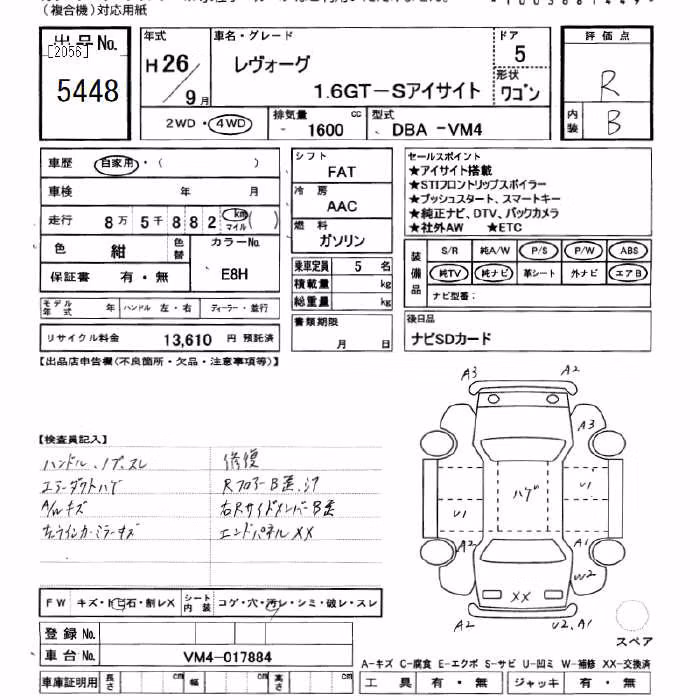 （複合機）対応用紙
出品No.
[2056]
5448
年式
H26/9月
車名・グレード
レヴォーグ
1.6GT-Sアイサイト
ドア
5
形状
ワゴン
評価点
R
内装
B
2WD・4WD
排気量
1600 cc
型式
DBA -VM4
車歴 自家用・( )
車検 年 月
走行 8万5千882 km マイル ( )
色 紺 色替
カラーNo.
E8H
保証書 有・無
モデル年式 年 ハンドル 左・右 ディーラー・並行
リサイクル料金 13,610 円 預託済
シフト
FAT
冷房
AAC
燃料
ガソリン
乗車定員 5 名
積載量 kg
総重量 kg
書類期限
月 日
セールスポイント
★アイサイト搭載
★STIフロントリップスポイラー
★プッシュスタート、スマートキー
★純正ナビ、DTV、バックカメラ
★社外AW ★ETC
装備品
S/R 純A/W P/S P/W ABS
純TV 純ナビ 革シート 外ナビ エアB
ナビ型番：
後日品
ナビSDカード
【出品店申告欄(不良箇所・欠品・注意事項等)】
【検査員記入】
ハンドル、ノブ、スレ
エアーダクトハゲ
A/Wキズ
左ウインカーミラーキズ
修復
RフロアーB歪、
右RサイドメンバーB歪
エンドパネルXX
A3 A2
A3
ハゲ
U1
U1
A2 A1
W2
XX
A2 U2、A1
スペア
FW キズ・ヒビ石・割レX シート内装 コゲ・穴・汚レ・シミ・破レ・スレ
登録No.
車台No. VM4-017884
車庫証明用 長さ cm 幅 cm 高さ cm
A-キズ C-腐食 E-エクボ S-サビ U-凹ミ W-補修 XX-交換済
工具 有・無 ジャッキ 有・無